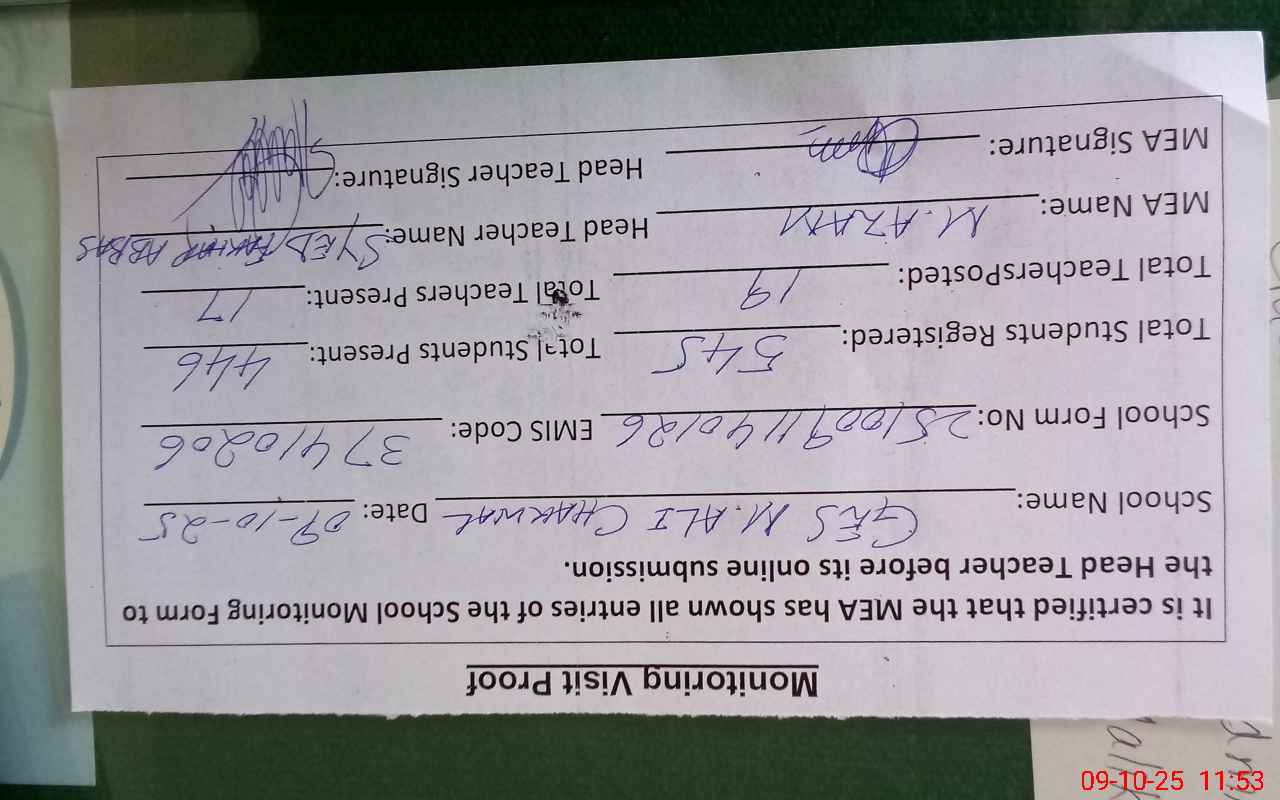 Monitoring Visit Proof
It is certified that the MEA has shown all entries of the School Monitoring Form to
the Head Teacher before its online submission.
School Name: GES M. ALI CHAKWAL Date: 09-10-25
School Form No: 2510091140126 EMIS Code: 37410206
Total Students Registered: 545 Total Students Present: 446
Total TeachersPosted: 19 Total Teachers Present: 17
MEA Name: M. AZAM Head Teacher Name: SYED ABBAS
MEA Signature: Head Teacher Signature:
09-10-25 11:53